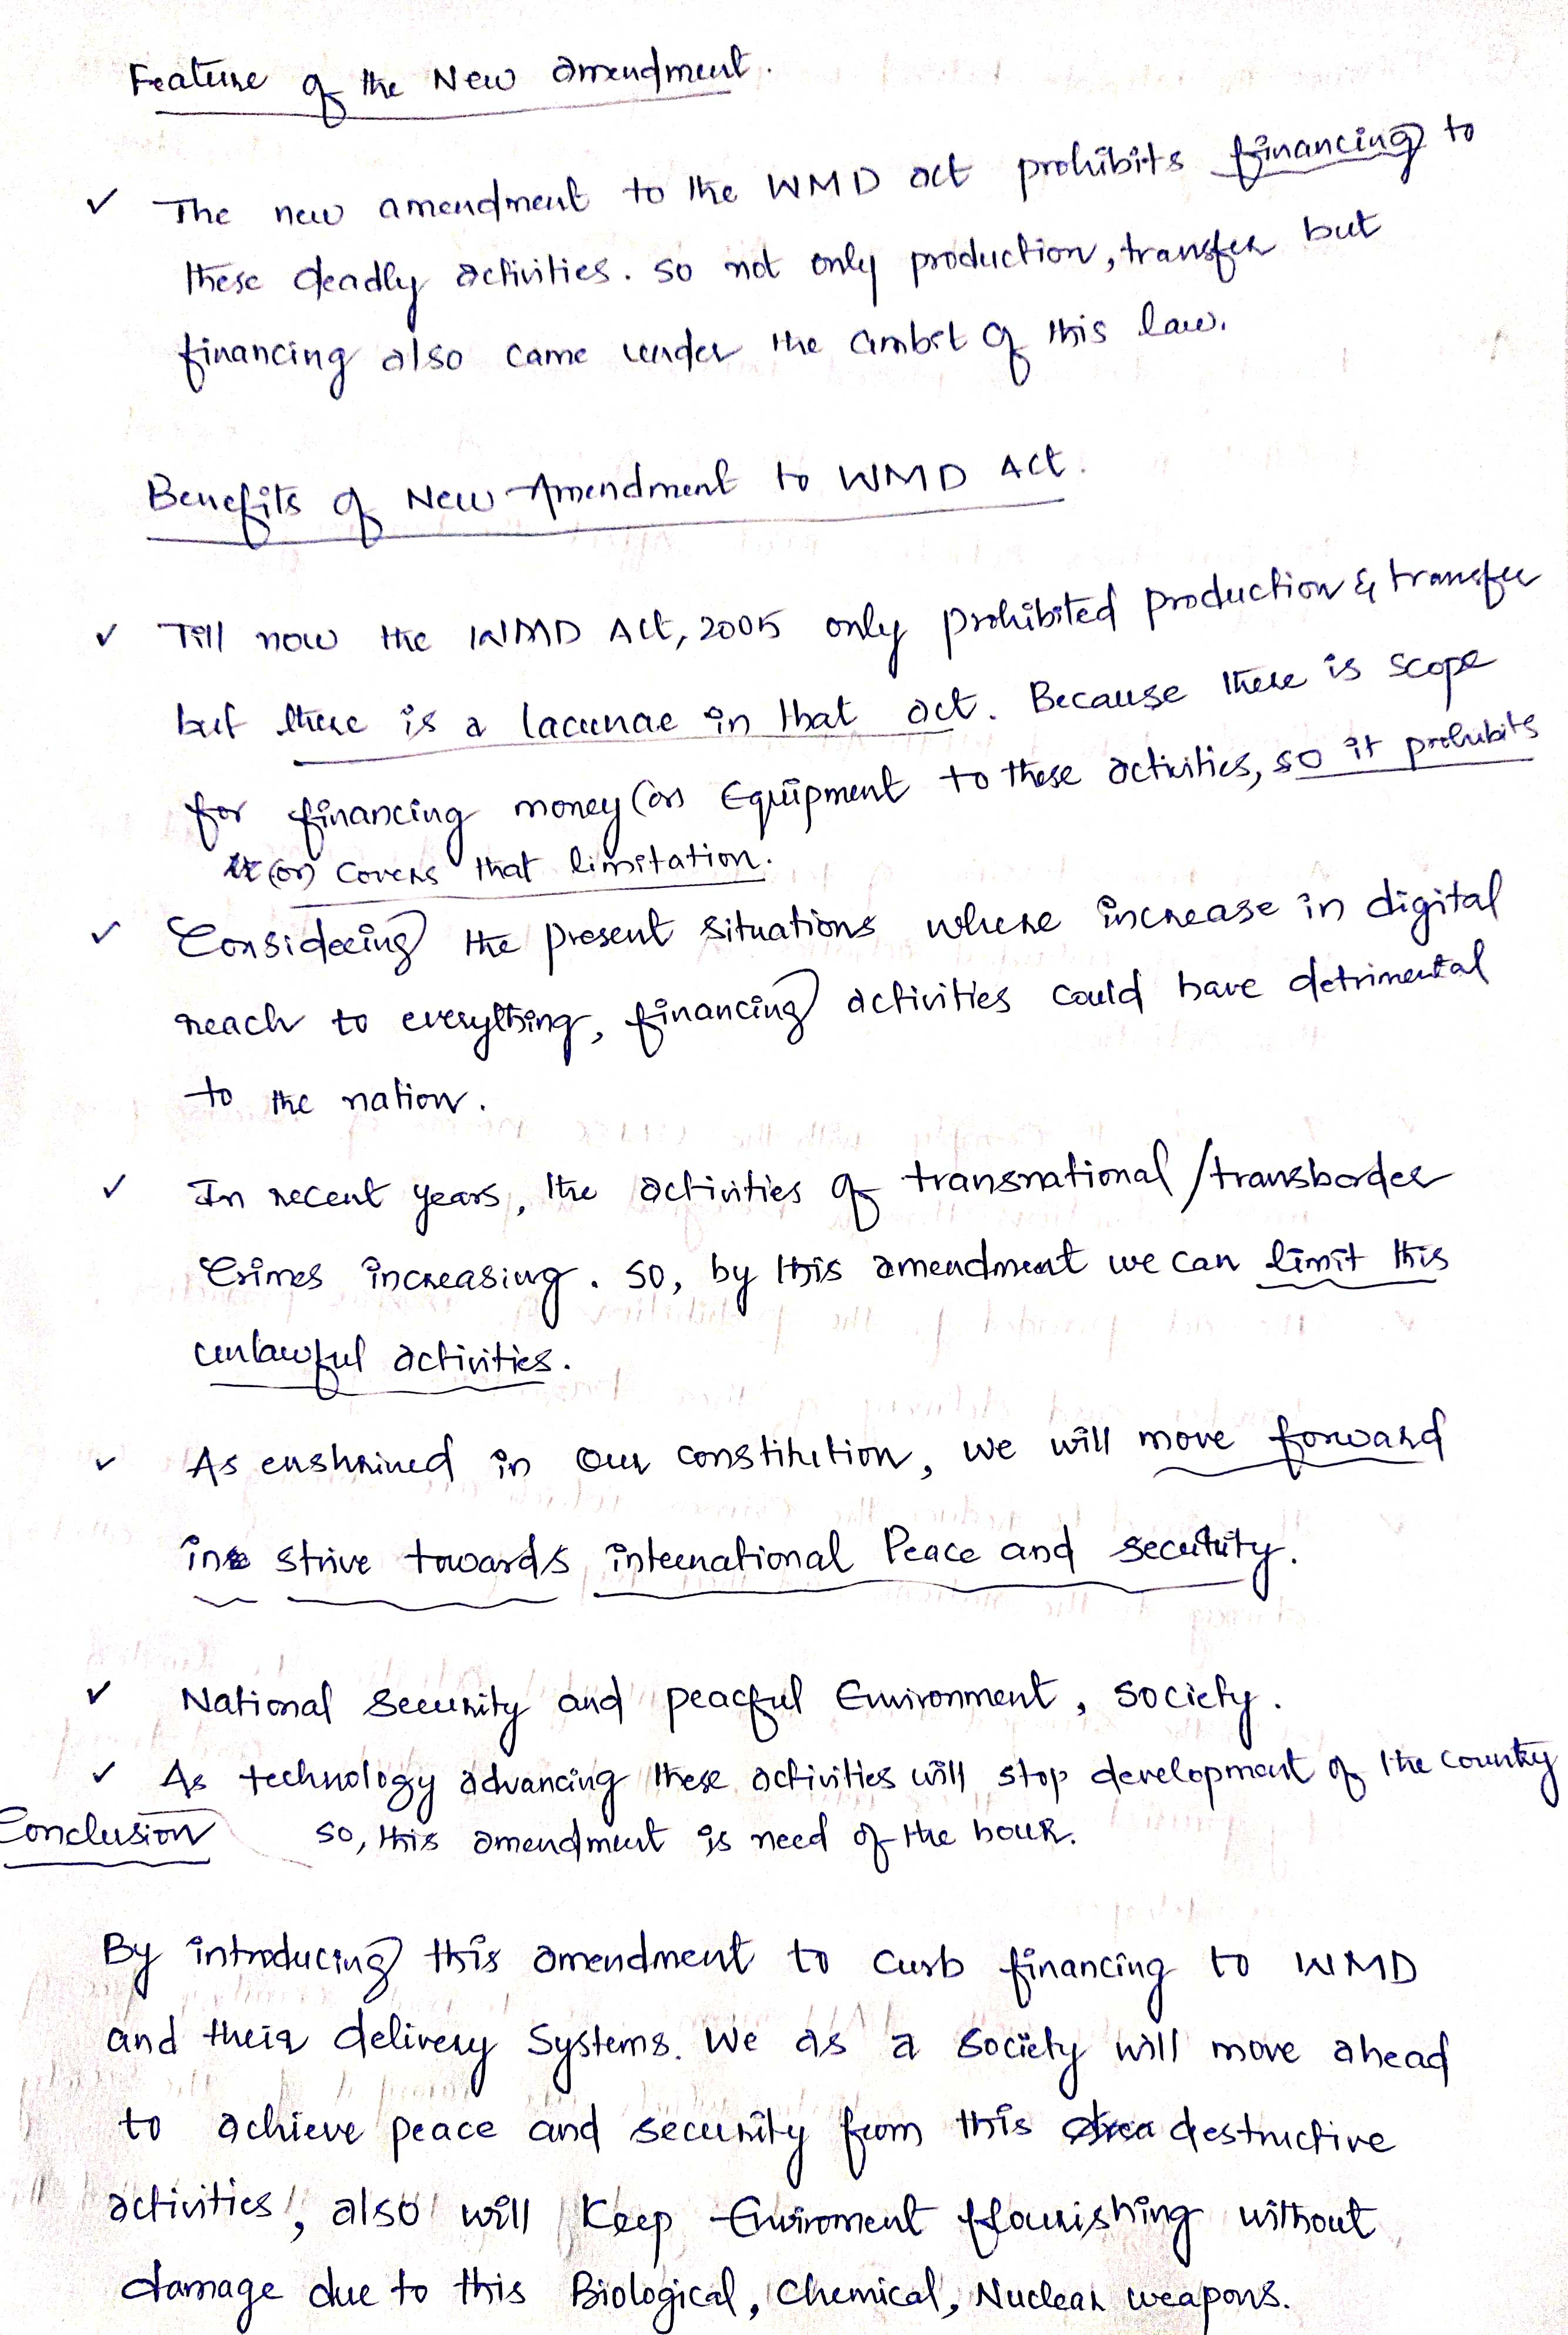 Feature of the New amendment.
✓ The new amendment to the WMD act prohibits financing to
these deadly activities. so not only production, transfer but
financing also came under the ambit of this law.
Benefits of New Amendment to WMD Act.
✓ Till now the WMD Act, 2005 only prohibited production & transfer
but there is a lacunae in that act. Because there is scope
for financing money (or) Equipment to these activities, so it prohibits
it (or) covers that limitation.
✓ Considering the present situations where increase in digital
reach to everything, financing activities could have detrimental
to the nation.
✓ In recent years, the activities of transnational/transborder
Crimes increasing. so, by this amendment we can limit this
unlawful activities.
✓ As enshrined in our constitution, we will move forward
in strive towards international Peace and security.
✓ National security and peacful Environment, society.
✓ As technology advancing these activities will stop development of the country
so, this amendment is need of the hour.
Conclusion
By introducing this amendment to curb financing to WMD
and their delivery systems. We as a society will move ahead
to achieve peace and security from this destructive
activities, also will keep Enviroment flourishing without
damage due to this Biological, Chemical, Nuclear weapons.